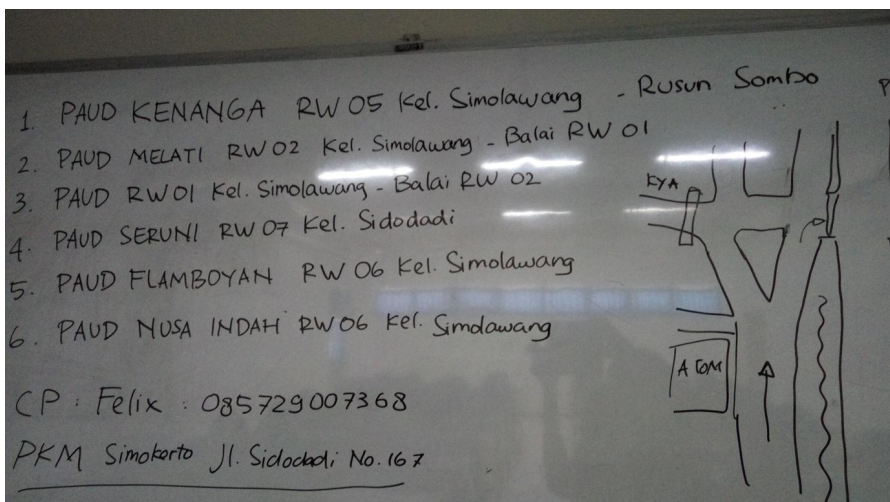 1. PAUD KENANGA RW 05 Kel. Simolawang - Rusun Sombo
2. PAUD MELATI RW 02 Kel. Simolawang - Balai RW 01
3. PAUD RW 01 Kel. Simolawang - Balai RW 02
4. PAUD SERUNI RW 07 Kel. Sidodadi
5. PAUD FLAMBOYAN RW 06 Kel. Simolawang
6. PAUD NUSA INDAH RW 06 Kel. Simolawang
CP : Felix : 085729007368
PKM Simokerto Jl. Sidodadi No. 167
KYA
ATOM
P